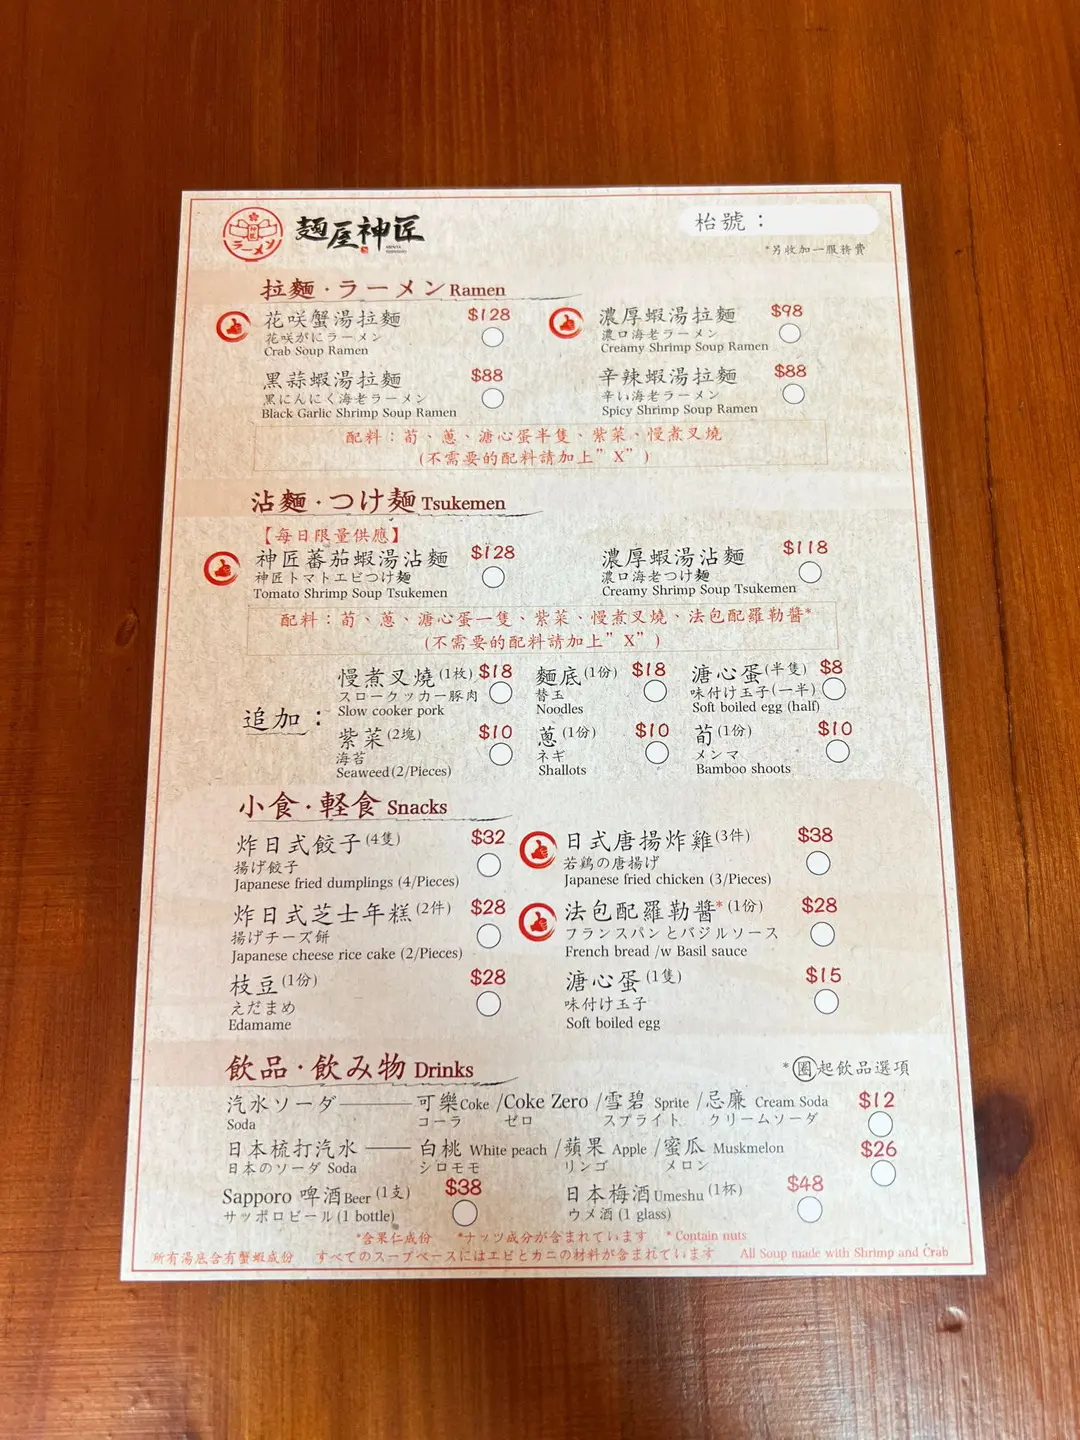 ラーメン
麵屋神匠
枱號：
*另收加一服務費
拉麵·ラーメン Ramen
花咲蟹湯拉麵 $128
花咲がにラーメン
Crab Soup Ramen
濃厚蝦湯拉麵 $98
濃口海老ラーメン
Creamy Shrimp Soup Ramen
黑蒜蝦湯拉麵 $88
黒にんにく海老ラーメン
Black Garlic Shrimp Soup Ramen
辛辣蝦湯拉麵 $88
辛い海老ラーメン
Spicy Shrimp Soup Ramen
配料：荀、蔥、溏心蛋半隻、紫菜、慢煮叉燒
(不需要的配料請加上”X”)
沾麵·つけ麺 Tsukemen
【每日限量供應】
神匠蕃茄蝦湯沾麵 $128
神匠トマトエビつけ麺
Tomato Shrimp Soup Tsukemen
濃厚蝦湯沾麵 $118
濃口海老つけ麺
Creamy Shrimp Soup Tsukemen
配料：荀、蔥、溏心蛋一隻、紫菜、慢煮叉燒、法包配羅勒醬*
(不需要的配料請加上”X”)
追加：
慢煮叉燒(1枚) $18
スロークッカー豚肉
Slow cooker pork
麵底(1份) $18
替玉
Noodles
溏心蛋(半隻) $8
味付け玉子(一半)
Soft boiled egg (half)
紫菜(2塊) $10
海苔
Seaweed(2/Pieces)
蔥(1份) $10
ネギ
Shallots
荀(1份) $10
メンマ
Bamboo shoots
小食·軽食 Snacks
炸日式餃子(4隻) $32
揚げ餃子
Japanese fried dumplings (4/Pieces)
日式唐揚炸雞(3件) $38
若鶏の唐揚げ
Japanese fried chicken (3/Pieces)
炸日式芝士年糕(2件) $28
揚げチーズ餅
Japanese cheese rice cake (2/Pieces)
法包配羅勒醬*(1份) $28
フランスパンとバジルソース
French bread /w Basil sauce
枝豆(1份) $28
えだまめ
Edamame
溏心蛋(1隻) $15
味付け玉子
Soft boiled egg
飲品·飲み物 Drinks
*圈起飲品選項
汽水ソーダ——可樂Coke /Coke Zero /雪碧 Sprite /忌廉 Cream Soda $12
Soda コーラ ゼロ スプライト クリームソーダ
日本梳打汽水——白桃 White peach /蘋果 Apple /蜜瓜 Muskmelon $26
日本のソーダ Soda シロモモ リンゴ メロン
Sapporo 啤酒Beer (1支) $38
サッポロビール(1 bottle)
日本梅酒Umeshu (1杯) $48
ウメ酒 (1 glass)
*含果仁成份 *ナッツ成分が含まれています * Contain nuts
所有湯底含有蟹蝦成份 すべてのスープベースにはエビとカニの材料が含まれています All Soup made with Shrimp and Crab